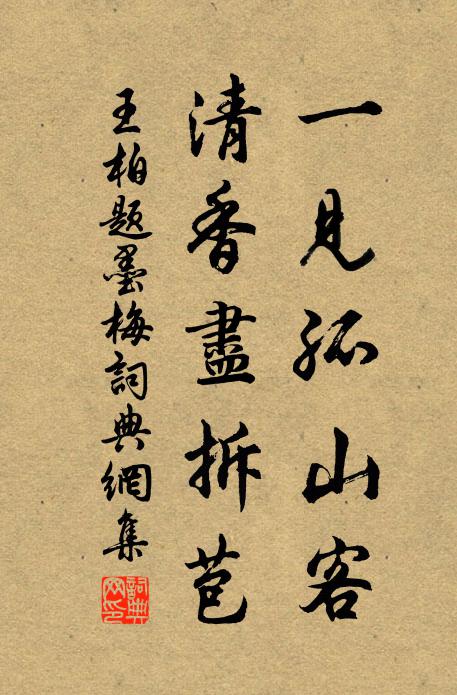 一見孤山客
清香盡拆苞
王柏題墨梅詞典網集
詞典网印